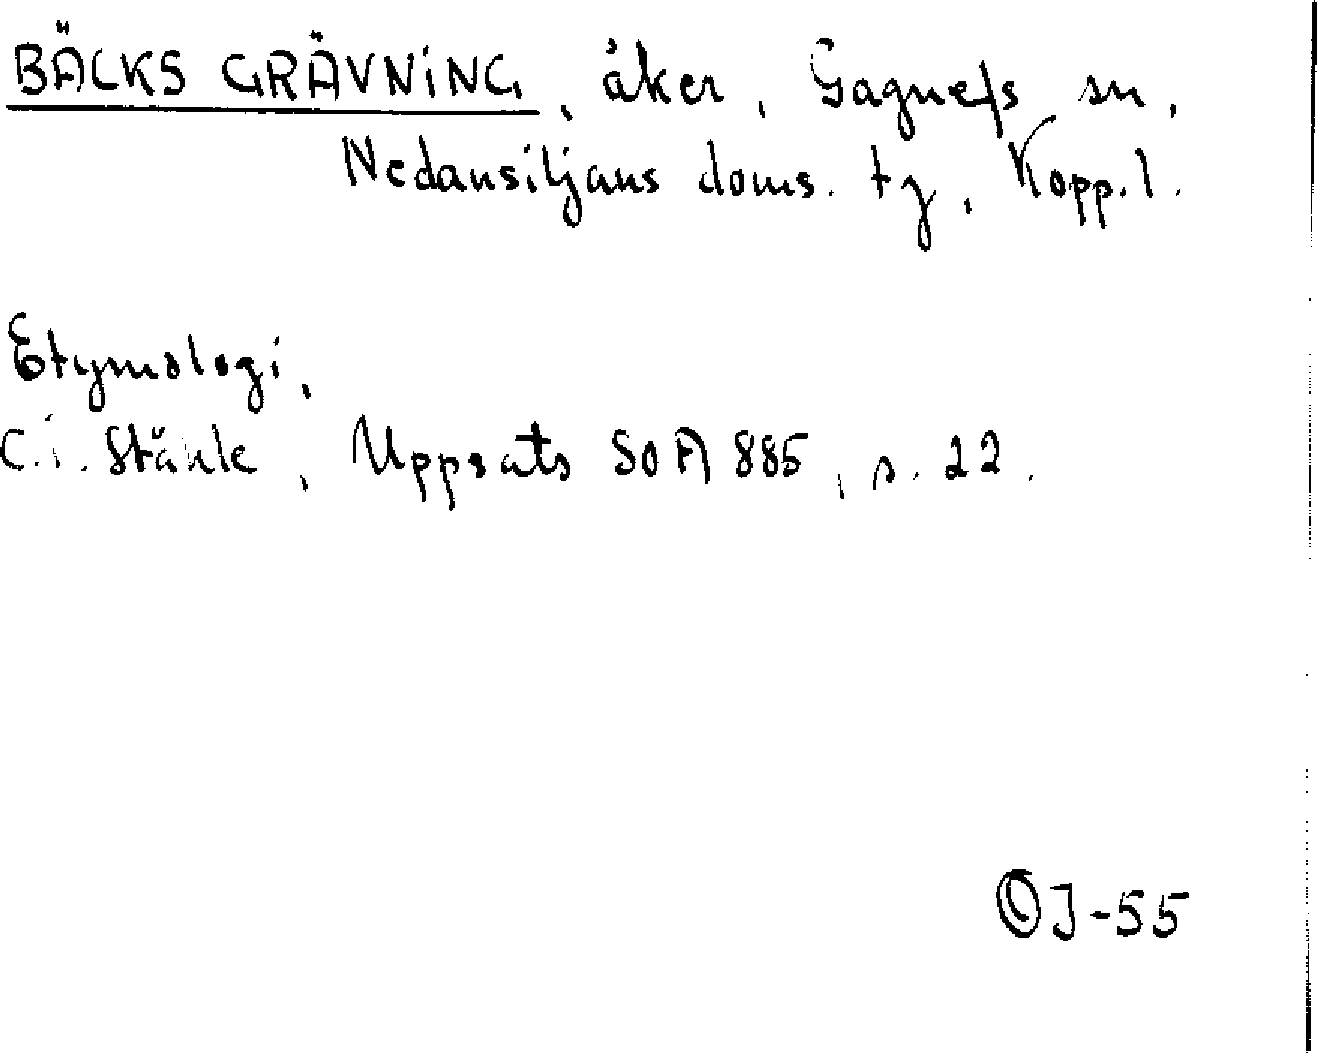 BÄCKS GRÄVNING, åker, Gagnefs sn,
Nedansiljans doms. tg, Kopp. l.
Etymologi,
C.i. Ståhle, Uppsats SOA 885, s. 22.
OJ-55